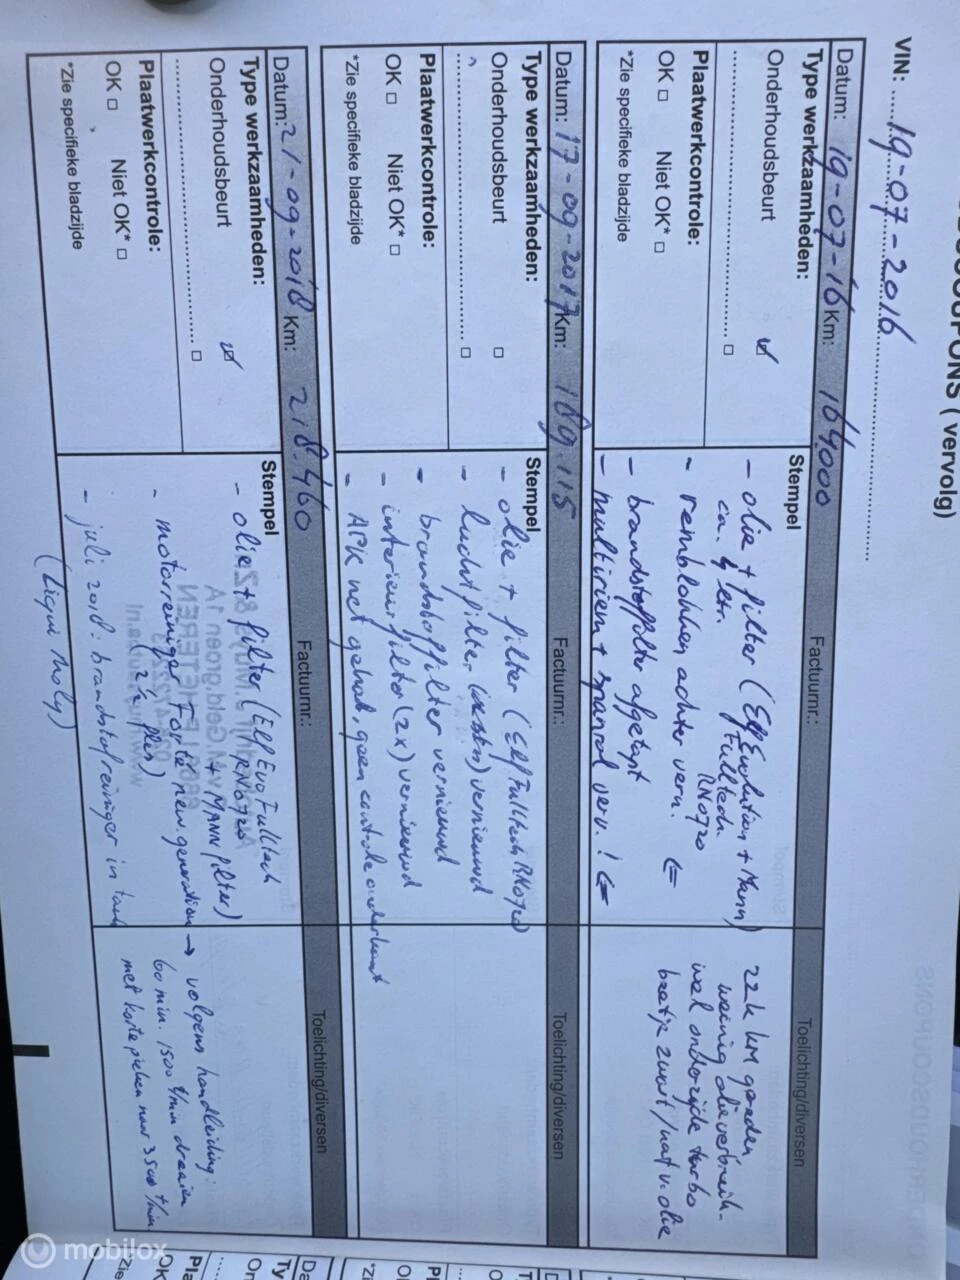 COUPONS ( vervolg)
VIN: 19-07-2016
Datum: 19-07-16 Km: 164000 Factuurnr.: Toelichting/diversen
Type werkzaamheden:
Onderhoudsbeurt
Plaatwerkcontrole:
OK Niet OK*
*Zie specifieke bladzijde
Stempel
- olie + filter (Elf Evolution + Mann)
ca. 4 ltr. Fulltech
RN0720
- remblokken achter verv. !
- brandstoffilter afgetapt
- multiriem + spanrol verv. !
22k km gereden
weinig olieverbruik.
wel onderzijde turbo
beetje zwart/nat v. olie
Datum: 17-09-2017 Km: 189.115 Factuurnr.: Toelichting/diversen
Type werkzaamheden:
Onderhoudsbeurt
Plaatwerkcontrole:
OK Niet OK*
*Zie specifieke bladzijde
Stempel
- olie + filter (Elf Fulltech RN0720)
- luchtfilter vernieuwd
- brandstoffilter vernieuwd
- interieurfilter (2x) vernieuwd
- APK net gehad, geen controle onderkant
Datum: 21-09-2018 Km: 218.460 Factuurnr.: Toelichting/diversen
Type werkzaamheden:
Onderhoudsbeurt
Plaatwerkcontrole:
OK Niet OK*
*Zie specifieke bladzijde
Stempel
- olie + filter (Elf Evo Fulltech
RN0720 + MANN filter)
- motorreiniger Forté new generation →
- juli 2018: brandstofreiniger in tank
(Liqui Moly)
volgens handleiding:
60 min. 1500 t/min draaien
met korte pieken naar 3500 t/min
mobilox